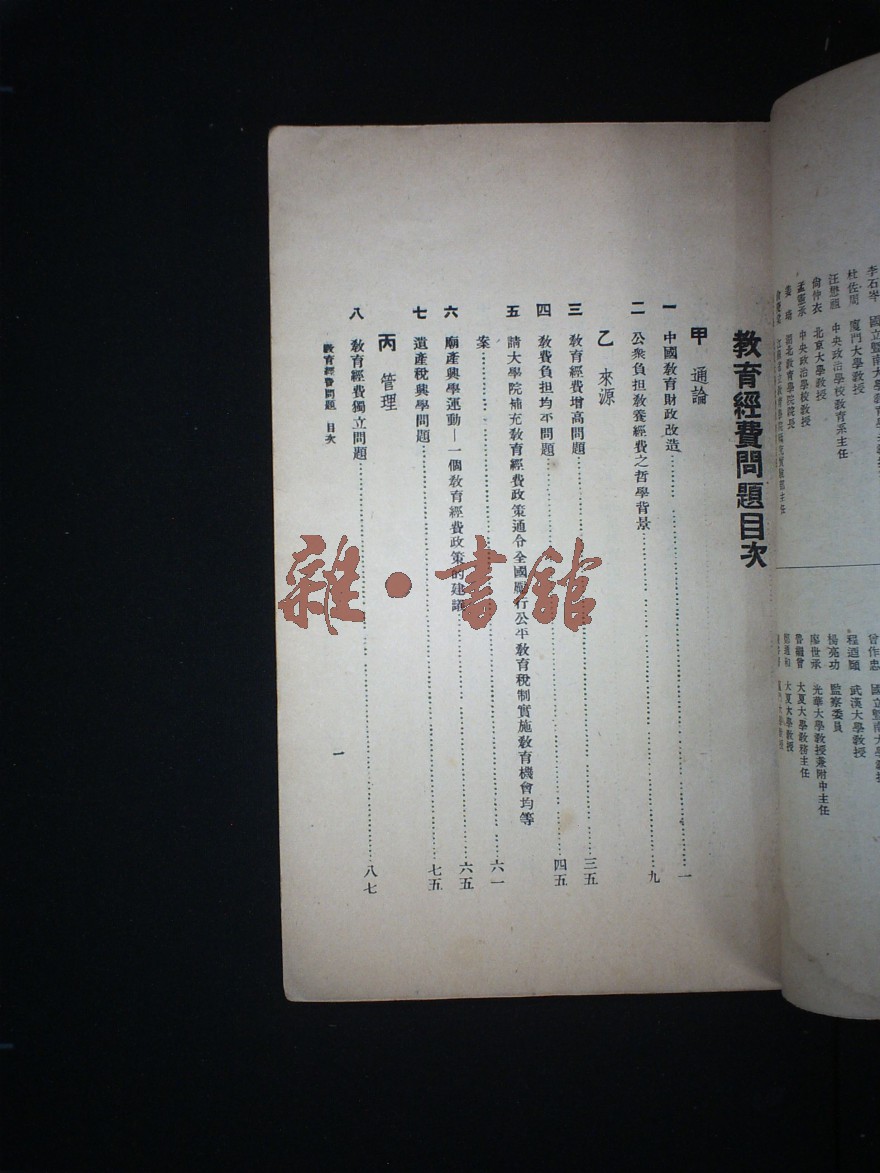 李石岑 國立暨南大學教育學
杜佐周 廈門大學教授
汪懋祖 中央政治學校教育系主任
尚仲衣 北京大學教授
孟憲承 中央政治學校教授
姜琦 湖北教育學院院長
曾作忠 國立暨南大學
程迺頤 武漢大學教授
楊亮功 監察委員
廖世承 光華大學教授兼附中主任
魯繼曾 大夏大學教務主任
大夏大學教授
教育經費問題目次
甲 通論
一 中國教育財政改造 一
二 公衆負担教養經費之哲學背景 九
乙 來源
三 教育經費增高問題 三五
四 教費負担均平問題 四五
五 請大學院補充教育經費政策通令全國厲行公平教育稅制實施教育機會均等
案 六一
六 廟產興學運動—一個教育經費政策的建議 六五
七 遺產稅興學問題 七五
丙 管理
八 教育經費獨立問題 八七
教育經費問題 目次
一
雜·書館